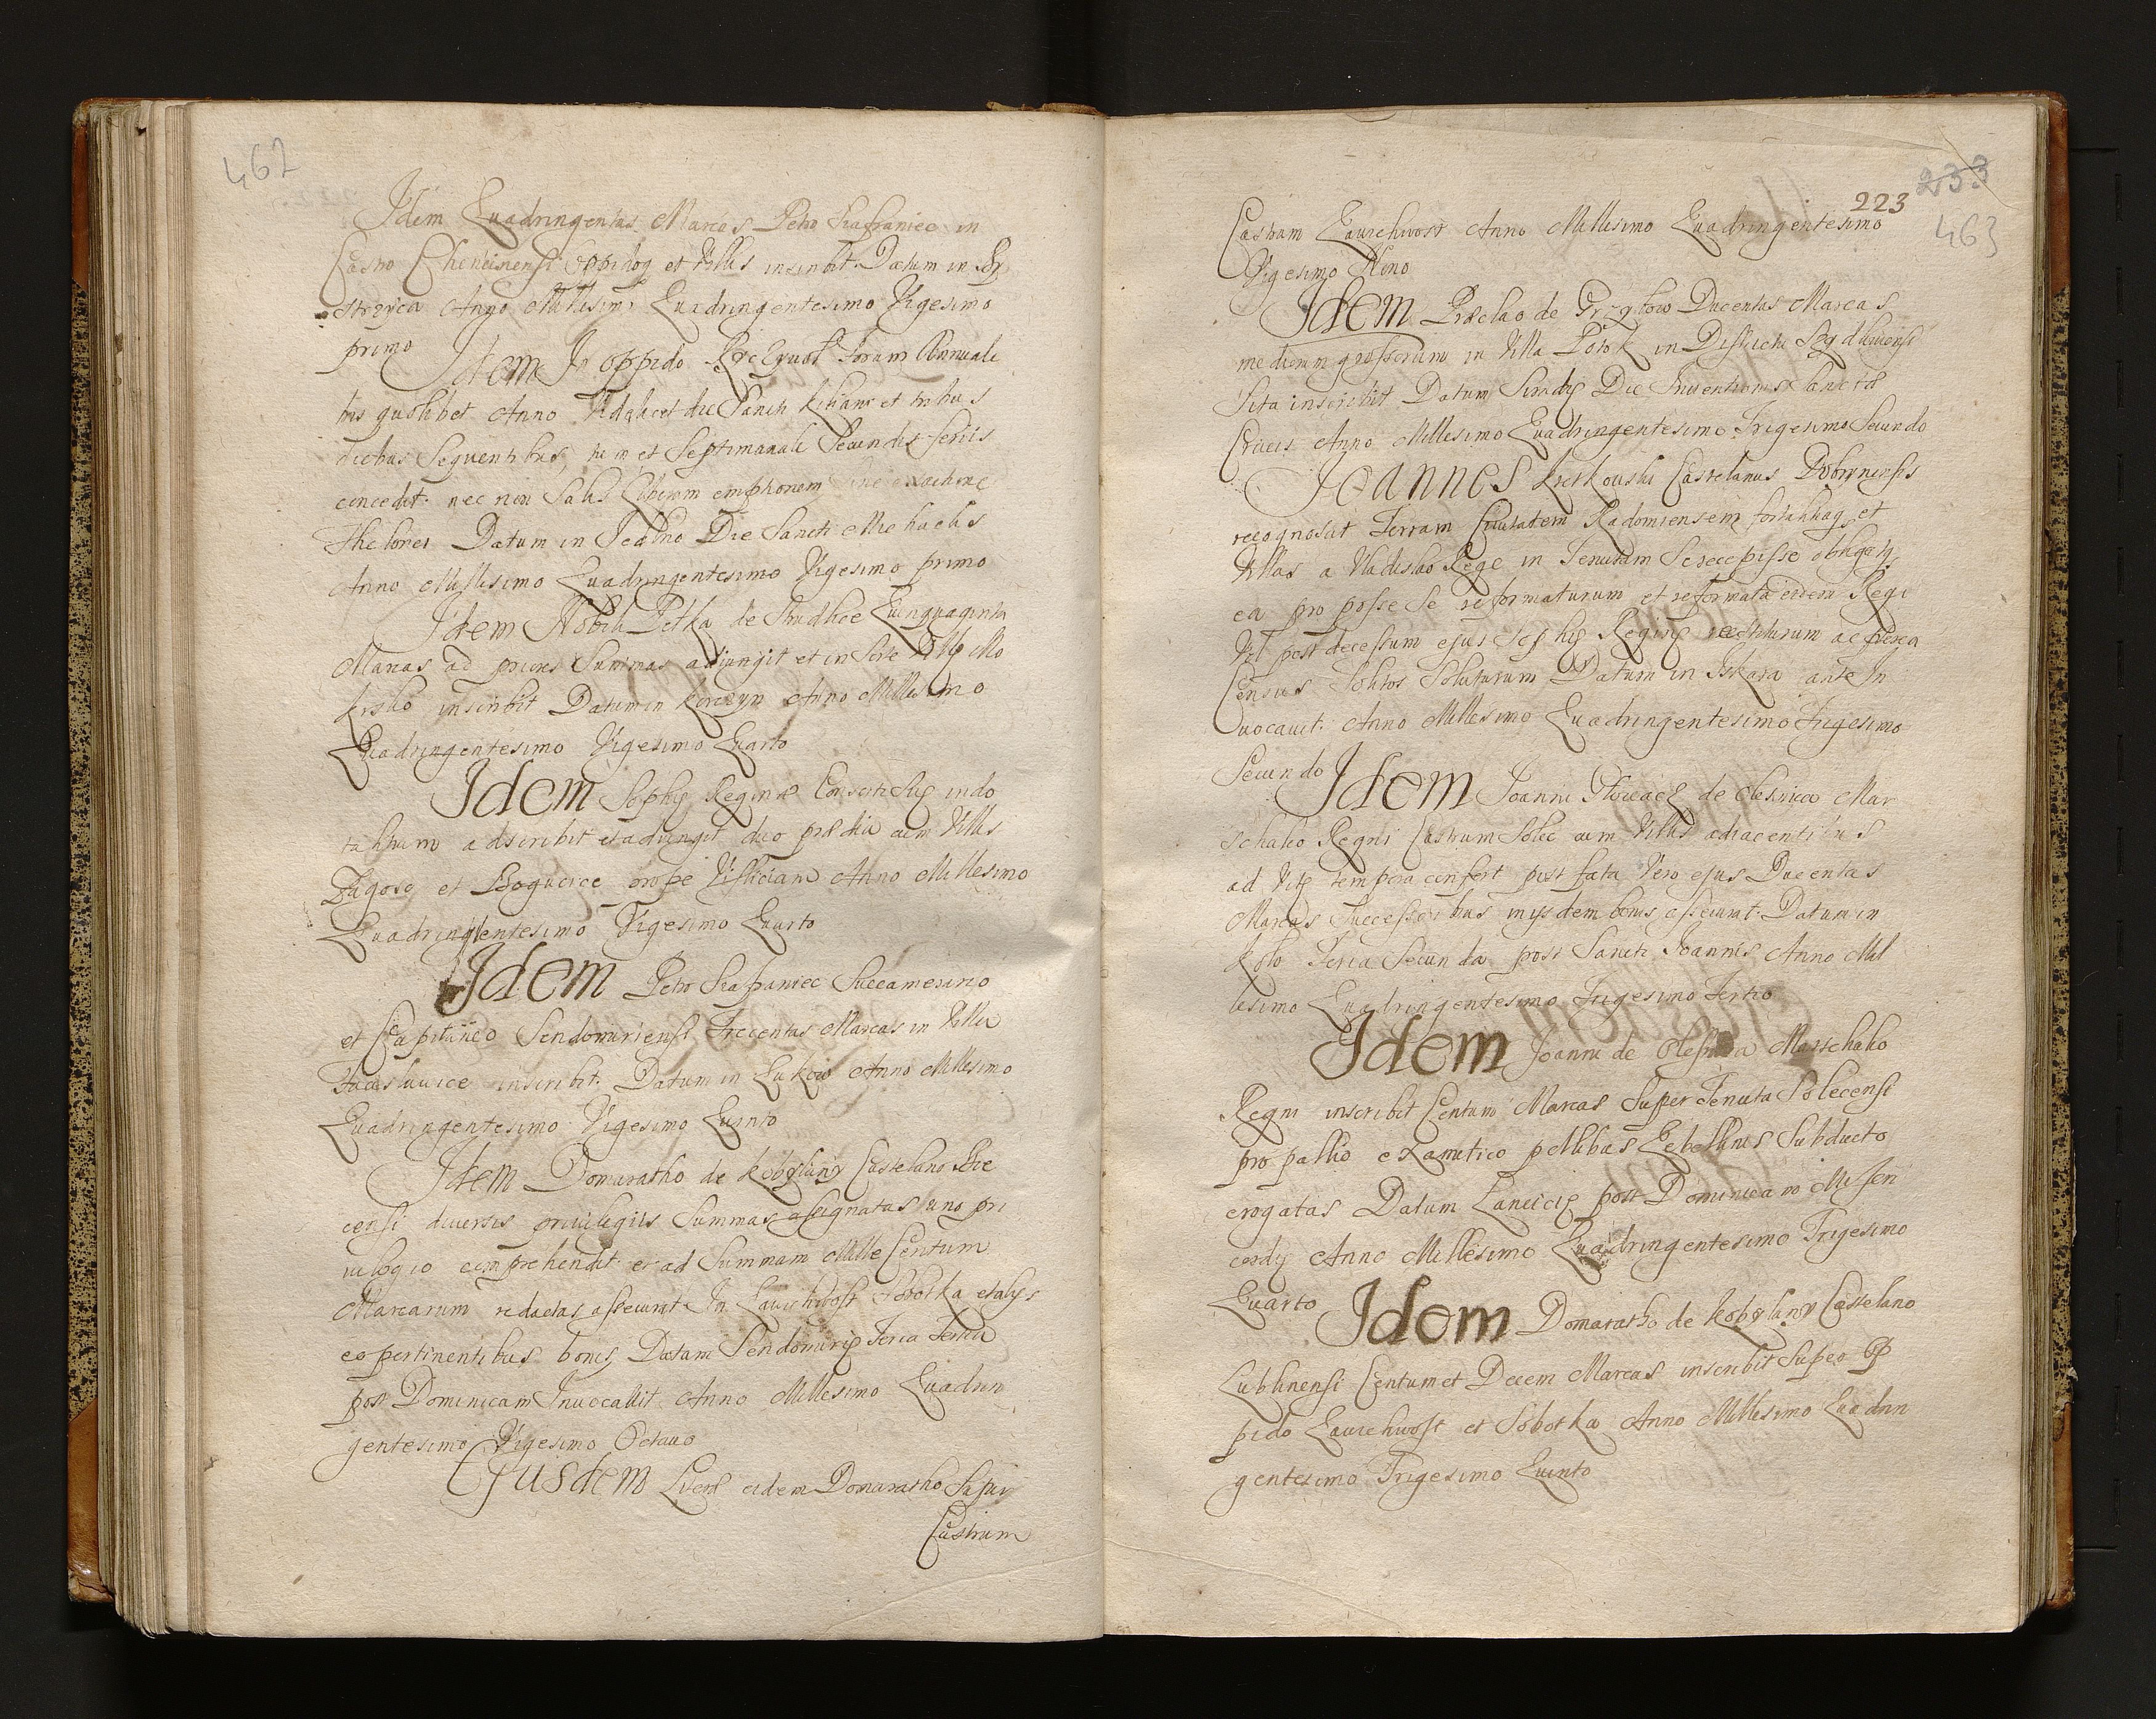 462
Idem Quadringentas Marcas Petro Szafraniec in
Castro Chencinensi oppidoq et Villis inscribit. Datum in
Anno Millesimo Quadringentesimo Vigesimo
primo
Idem In oppido forum Annuale
bis quolibet Anno Videlicet die Sancti Kiliani et tribus
diebus Sequentibus, tum et Septimanale Secundis feriis
concedit. nec non Salis liberam emptionem sine exactione
Thelonei Datum in Jedlno Die Sancti Michaelis
Anno Millesimo Quadringentesimo Vigesimo primo
Idem Nobili Petka de Quinquaginta
Marcas ad priores Summas adjungit et in Villę Mo
krsko inscribit Datum in Korczyn Anno Millesimo
Quadringentesimo Vigesimo Quarto
Idem Sophię Reginæ Consorti Suę in do
talitium adscribit et adiungit duo prædia cum Villis
et Bogucice prope Visliciam Anno Millesimo
Quadringentesimo Vigesimo Quarto
Idem Petro Szafraniec Succamerario
et Capitaneo Sendomiriensi Trecentas Marcas in Villa
inscribit. Datum in Lukow Anno Millesimo
Quadringentesimo Vigesimo Quinto
Idem Domaratho de Kobylany Castelano Bie
censi diversis privilegiis Summas assignatas uno pri
vilegio comprehendit et ad Summam Mille Centum
Marcarum redactas assecurat In Zawichwost Sobotka et alys
eo pertinentibus bonis Datam Sendomirię Feria Tertia
post Dominicam Invocavit Anno Millesimo Quadrin
gentesimo Vigesimo Octavo
Ejusdem eidem Domaratho Super
Castrum
233
223
463
Castrum Zawichwost Anno Millesimo Quadringentesimo
Vigesimo Nono
Idem de Ducentas Marcas
mediorum grossorum in Villa Potok in Districtu
Sita inscribit Datum Siradię Die Inventionis Sanctæ
Crucis Anno Millesimo Quadringentesimo Trigesimo Secundo
Joannes Castelanus Dobrynensis
recognoscit Terram Civitatem Radomiensem fortalitiaq et
Villas a Vladislao Rege in Tenutam Se recepisse obligatq
ea pro posse Se reformaturum et reformata eidem Regi
Vel post decessum ejus Sophię Reginę restituturum ac
Census Solitos Soluturum Datum in ante In
vocavit. Anno Millesimo Quadringentesimo Trigesimo
Secundo
Idem Joanni de Olesnica Mar
schalco Regni Castrum Solec cum Villis adiacentibus
ad Vitę tempora confert post fata Vero ejus Ducentas
Marcas Successoribus in ysdem bonis assecurat. Datum in
Kolo Feria Secunda post Sancti Joannis Anno Mil
lesimo Quadringentesimo Trigesimo Tertio
Idem Joanni de Olesnica Marschalco
Regni inscribit Centum Marcas Super Tenuta Solecensi
pro pallio exametico pellibus Zebellinis Subducto
erogatas Datum Lancicię post Dominicam Miseri
cordię Anno Millesimo Quadringentesimo Trigesimo
Quarto
Idem Domaratho de Kobylany Castelano
Lublinensi Centum et Decem Marcas inscribit Super Op
pido Zawichwost et Sobotka Anno Millesimo Quadrin
gentesimo Trigesimo Quinto